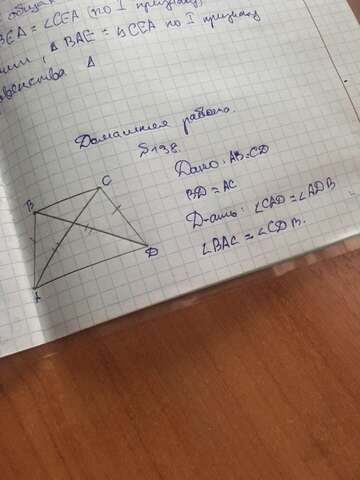 общая
ВЕА = ∠CEA (по I признаку)
ΔBAE = ΔCEA по I признаку
равенства Δ
Домашняя работа.
№138.
Дано: AB=CD
BD=AC
Д-ать: ∠CAD=∠ADB
∠BAC=∠CDB.
B
C
A
D